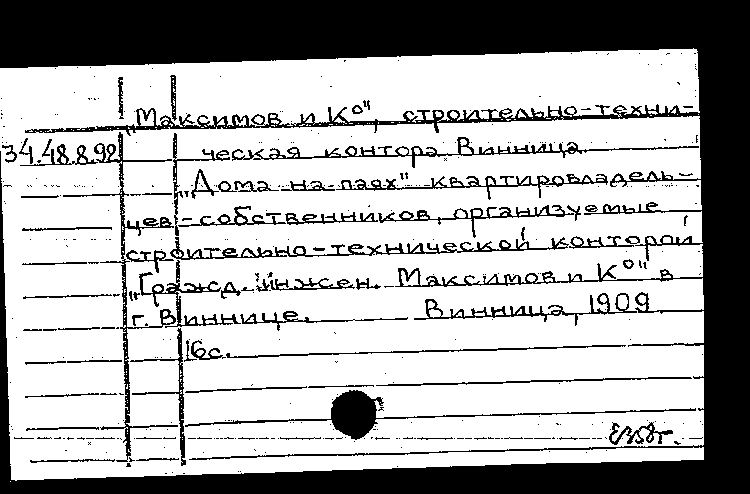 „Максимов и К°", строительно-техни-
34.48.8.92 ческая контора. Винница.
„Дома на паях" квартировладель-
цев-собственников, организуемые
строительно-технической конторой
„Гражд. инжен. Максимов и К°" в
г. Виннице. Винница, 1909.
16с.